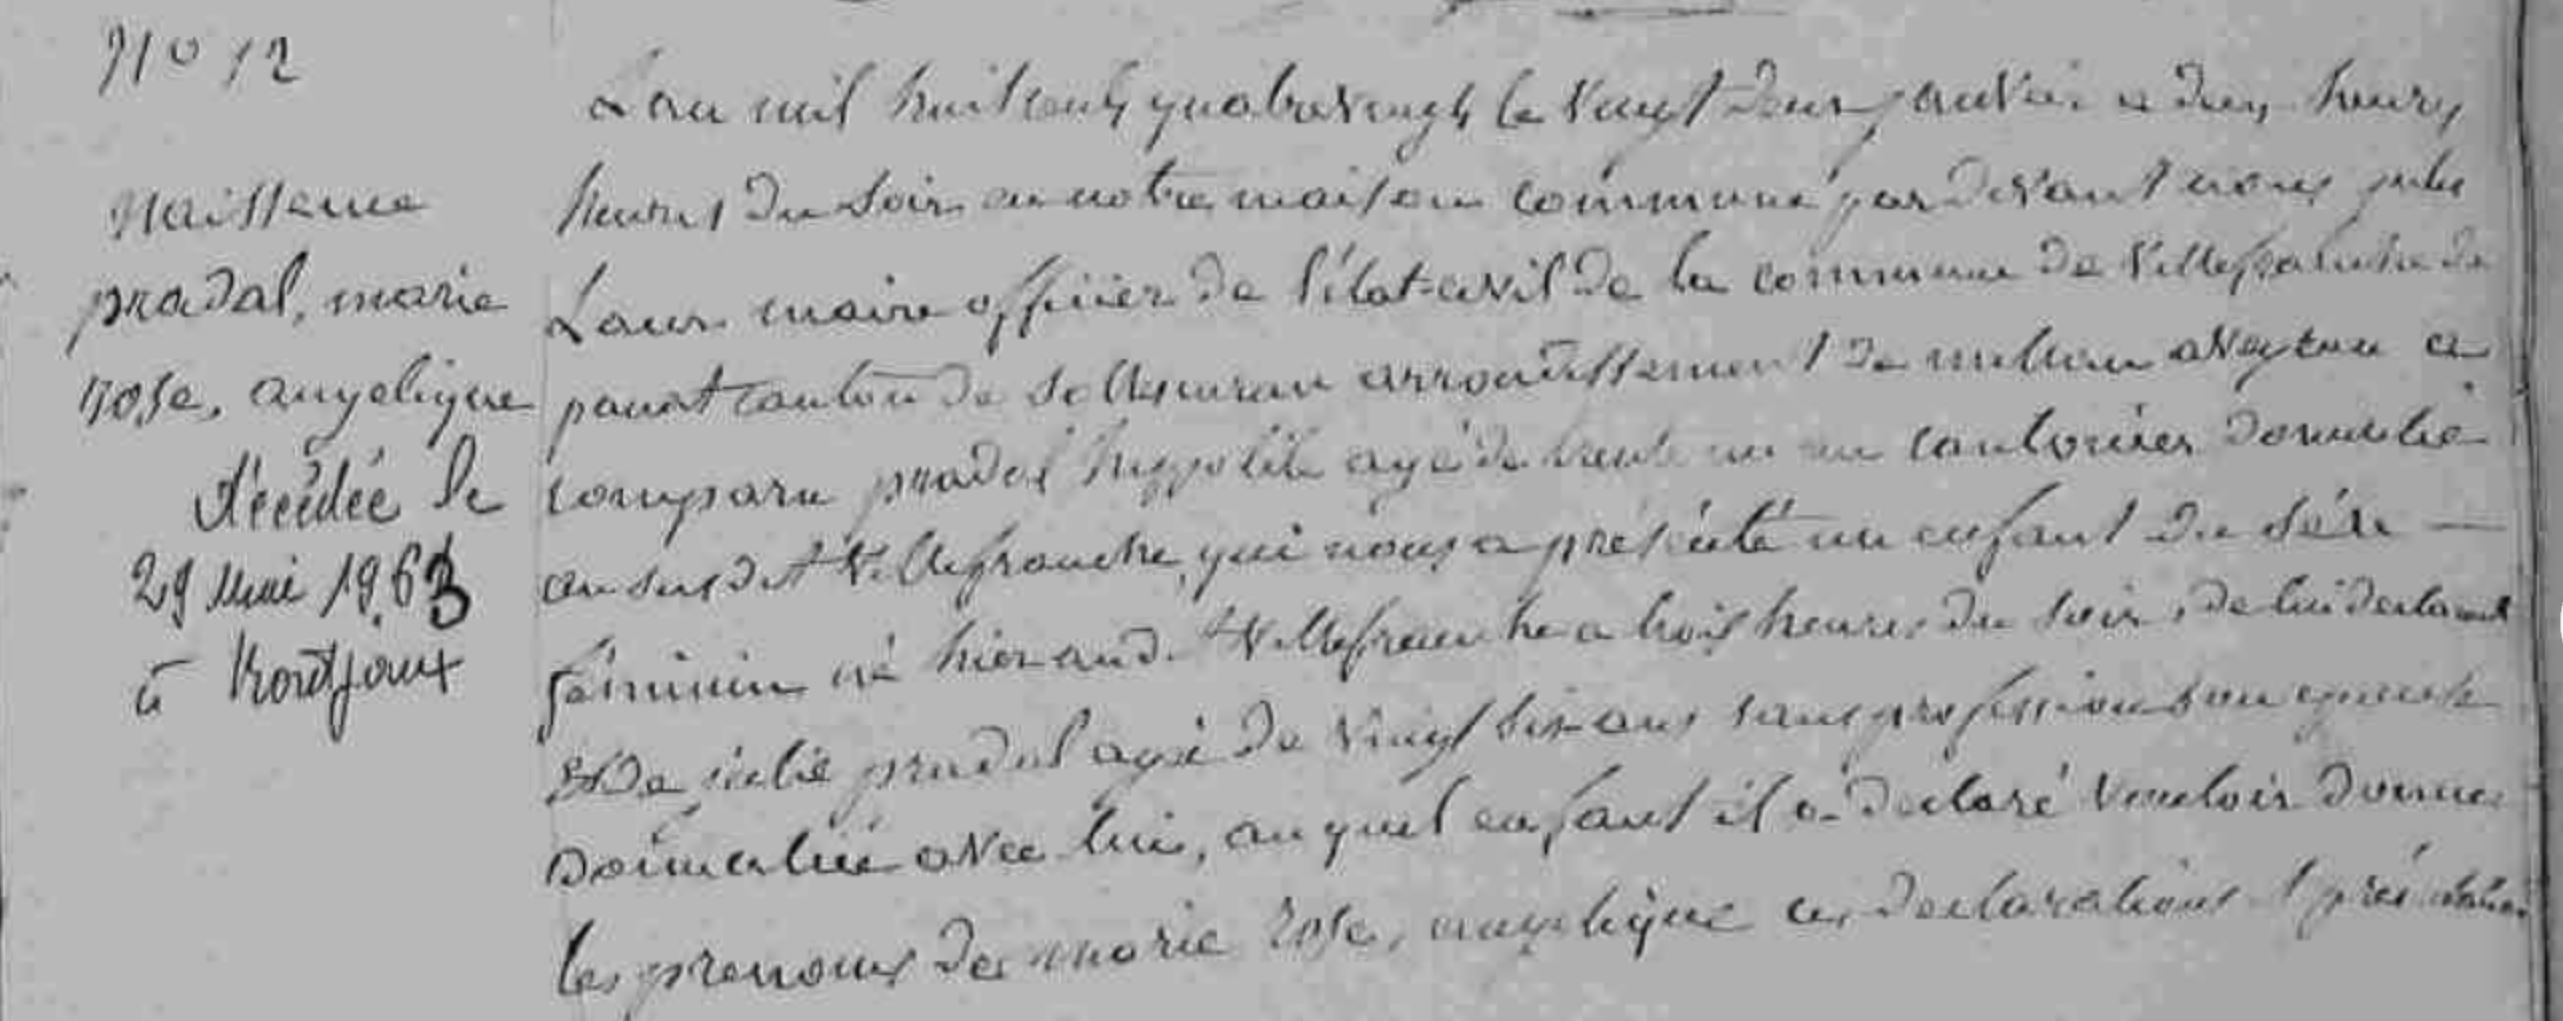 No 12
Naissence
pradal, marie
rose, angelique
Décédée le
29 Mai 1963
à Montjaux
Lan mil huit cents quatrevingts le vingt deux janvier a deux heures
heures du soir en notre maison commune par devant nous jules
Laur maire officier de l'état-civil de la commune de villefranche de
panat canton de sallescuran arrondissement de milhau aveyron a
comparu pradal hyppolite agé de trente un an cantonier domicilié
au susdit villefranche, qui nous a présenté un enfant du séxe
féminin né hier aud. villefranche a trois heures du soir, de lui declarant
et de julie pradal agé de vingt six ans sans profession son epouse
Domiciliée avec lui, auquel enfant il a déclaré vouloir donner
les prenoms de marie rose, angelique ces declarations et présentation